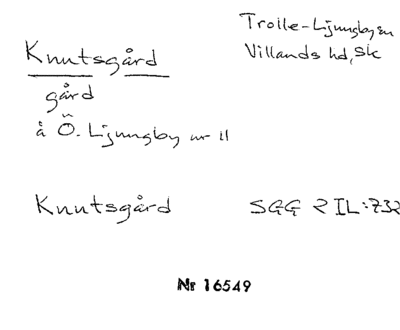 Trolle-Ljungby sn
Villands hd, Sk
Knutsgård
gård
å Ö. Ljungby nr 11
Knutsgård SGG 2 IL:732
Nr 16549